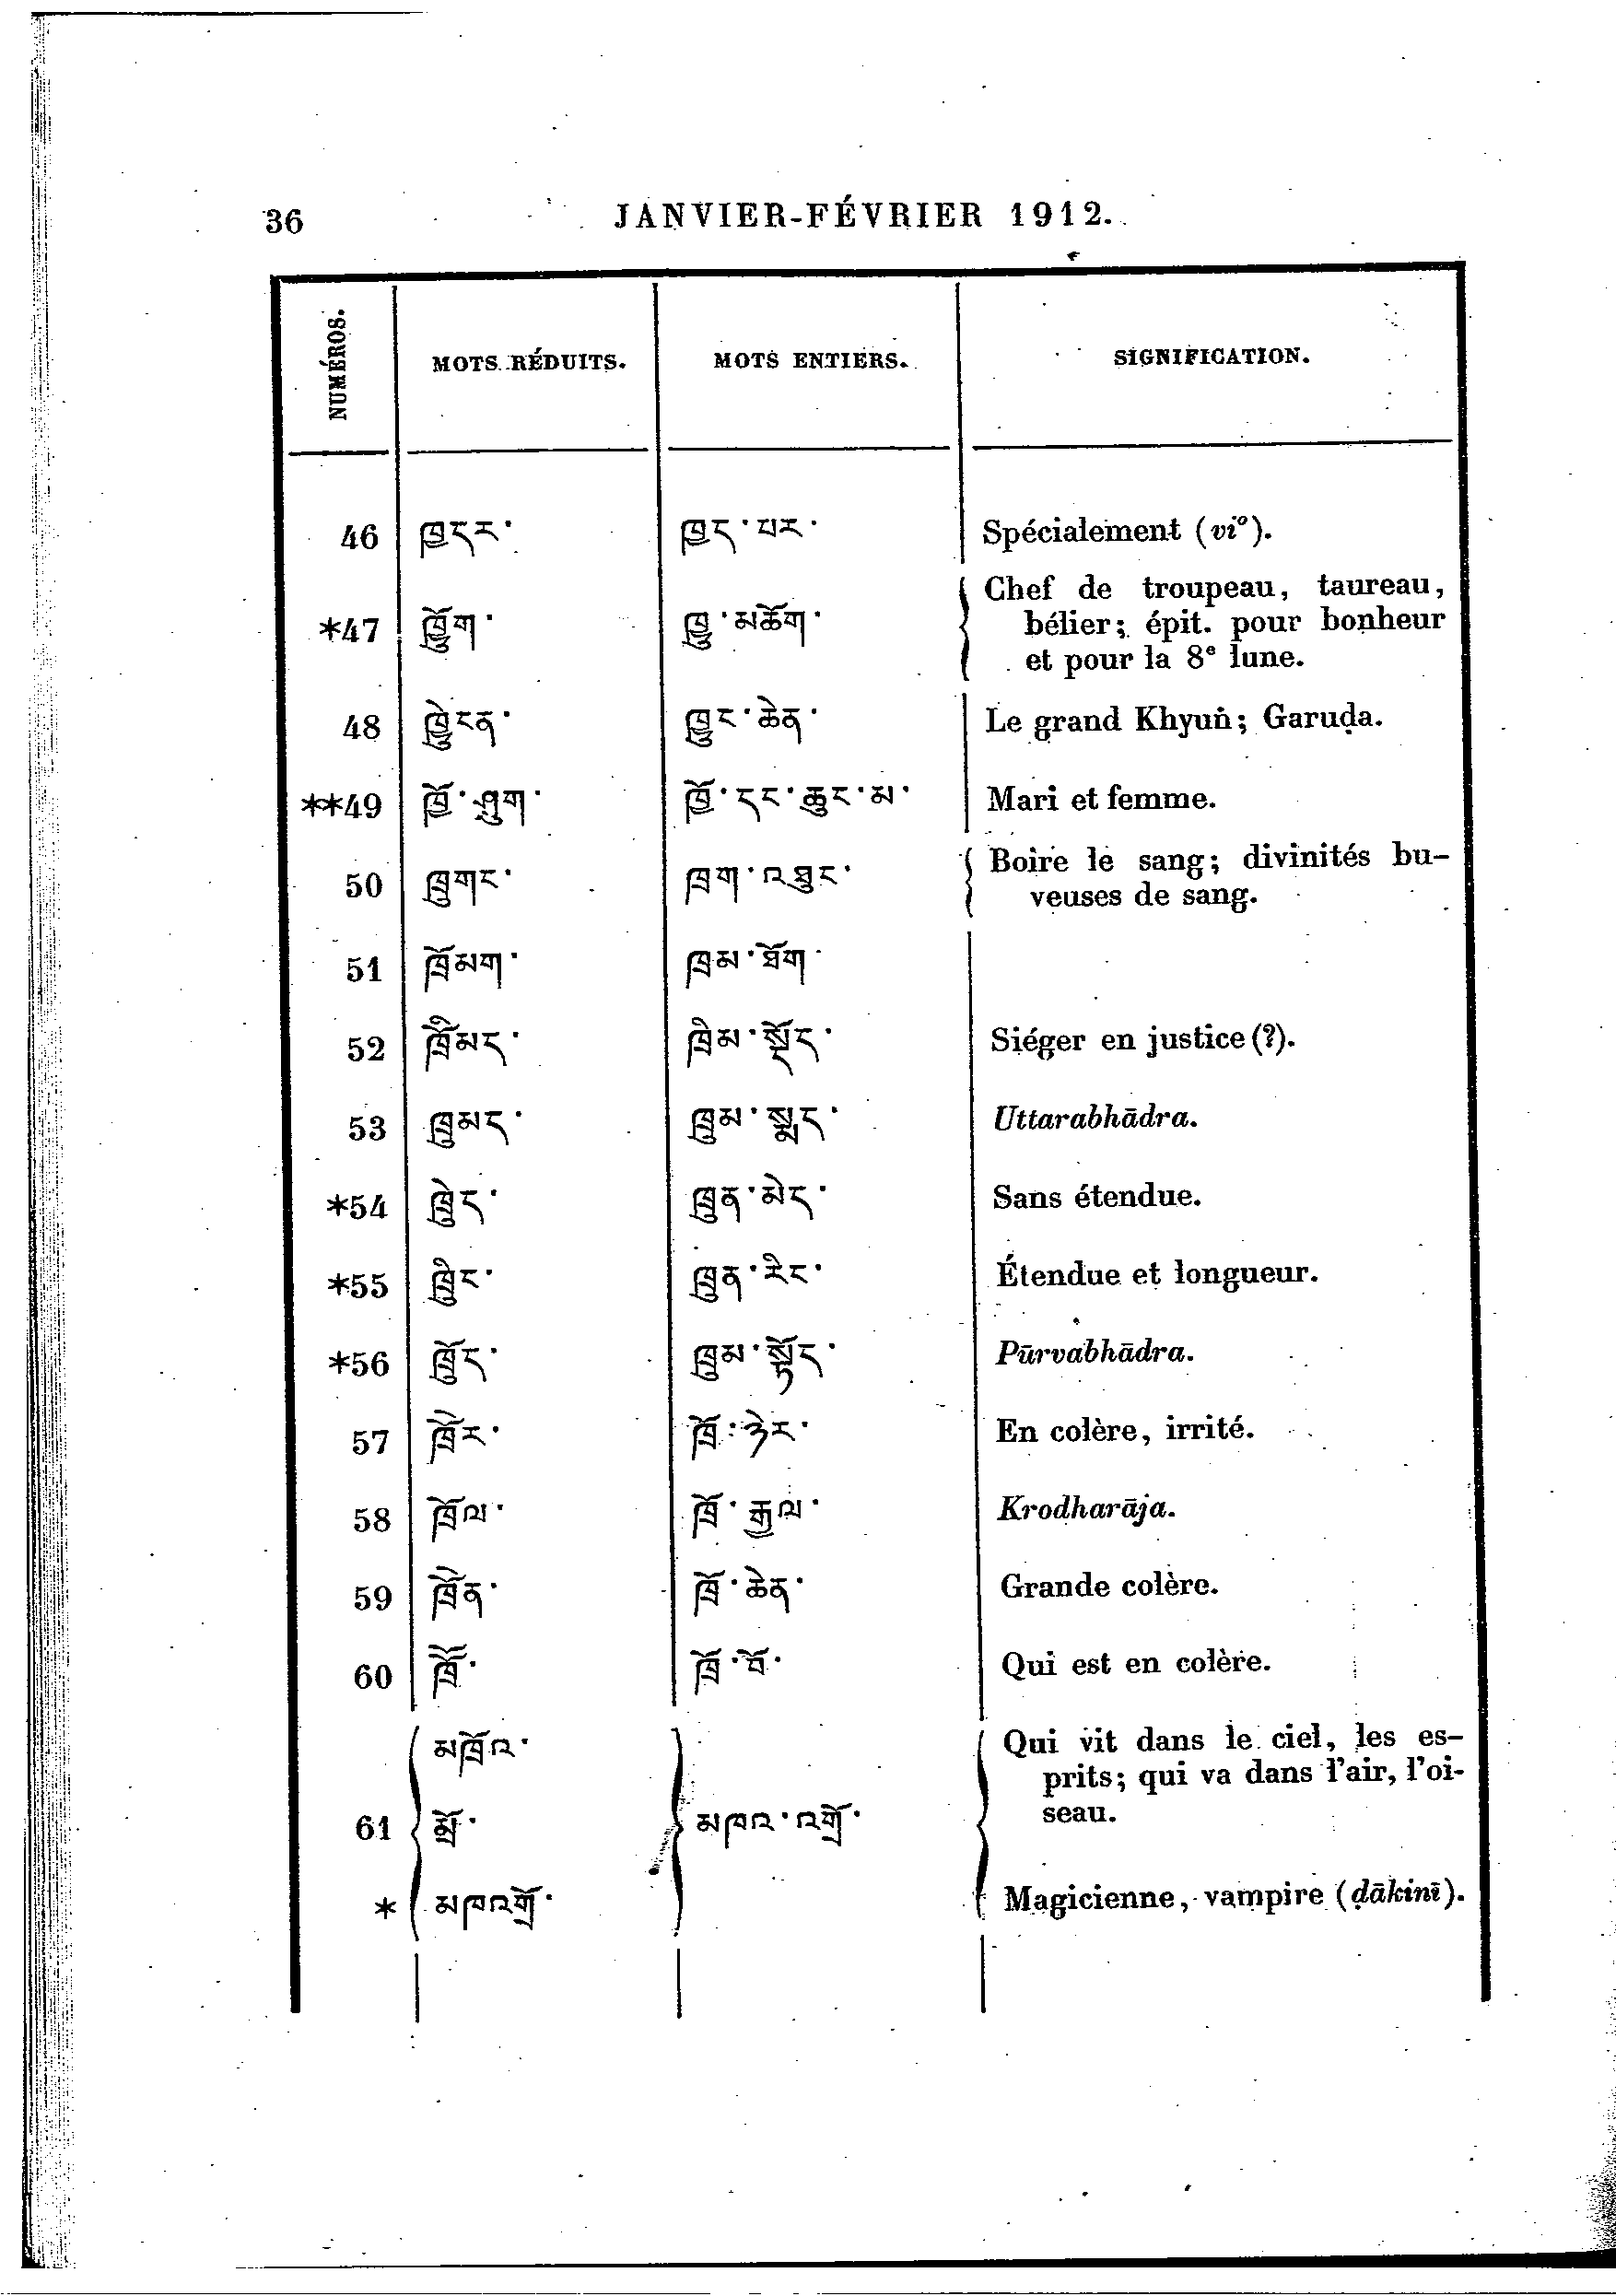 36 JANVIER-FÉVRIER 1912.
NUMÉROS. MOTS RÉDUITS. MOTS ENTIERS. SIGNIFICATION.
46 ཁྱདར་ ཁྱད་པར་ Spécialement (vi°).
*47 ཁྱོུག་ ཁྱུ་མཆོག་ Chef de troupeau, taureau,
bélier; épit. pour bonheur
et pour la 8e lune.
48 ཁྱེུངན་ ཁྱུང་ཆེན་ Le grand Khyuṅ; Garuḍa.
**49 ཁྱོ་ཤུག་ ཁྱོ་དང་ཆུང་མ་ Mari et femme.
50 ཁྲུགང་ ཁྲག་འཐུང་ Boire le sang; divinités bu-
veuses de sang.
51 ཁྲོམག་ ཁྲམ་ཐོག་
52 ཁྲིོམད་ ཁྲིམ་སྡོད་ Siéger en justice (?).
53 ཁྲུམད་ ཁྲུམ་སྨད་ Uttarabhādra.
*54 ཁྲེུད་ ཁྲུན་མེད་ Sans étendue.
*55 ཁྲིུང་ ཁྲུན་རིང་ Étendue et longueur.
*56 ཁྲོུད་ ཁྲུམ་སྟོད་ Pūrvabhādra.
57 ཁྲོེར་ ཁྲོ་ཉེར་ En colère, irrité.
58 ཁྲོལ་ ཁྲོ་རྒྱལ་ Krodharāja.
59 ཁྲོེན་ ཁྲོ་ཆེན་ Grande colère.
60 ཁྲོོ་ ཁྲོ་བོ་ Qui est en colère.
མཁྲོའ་ Qui vit dans le ciel, les es-
prits; qui va dans l'air, l'oi-
61 མྲོ་ མཁའ་འགྲོ་ seau.
* མཁའགྲོ་ Magicienne, vampire (ḍākinī).